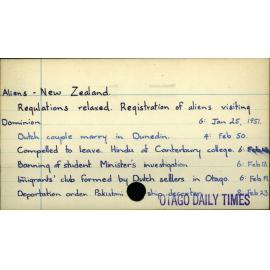 Aliens - New Zealand.
Regulations relaxed. Registration of aliens visiting
Dominion 6: Jan 25, 1951.
Dutch couple marry in Dunedin. 4: Feb 50.
Compelled to leave. Hindu at Canterbury college. 6: Feb
Banning of student. Minister's investigation 6: Feb 12.
Imigrants' club formed by Dutch settlers in Otago. 6: Feb 19.
Deportation order. Pakistani ship deserter. 8: Feb 23.
OTAGO DAILY TIMES